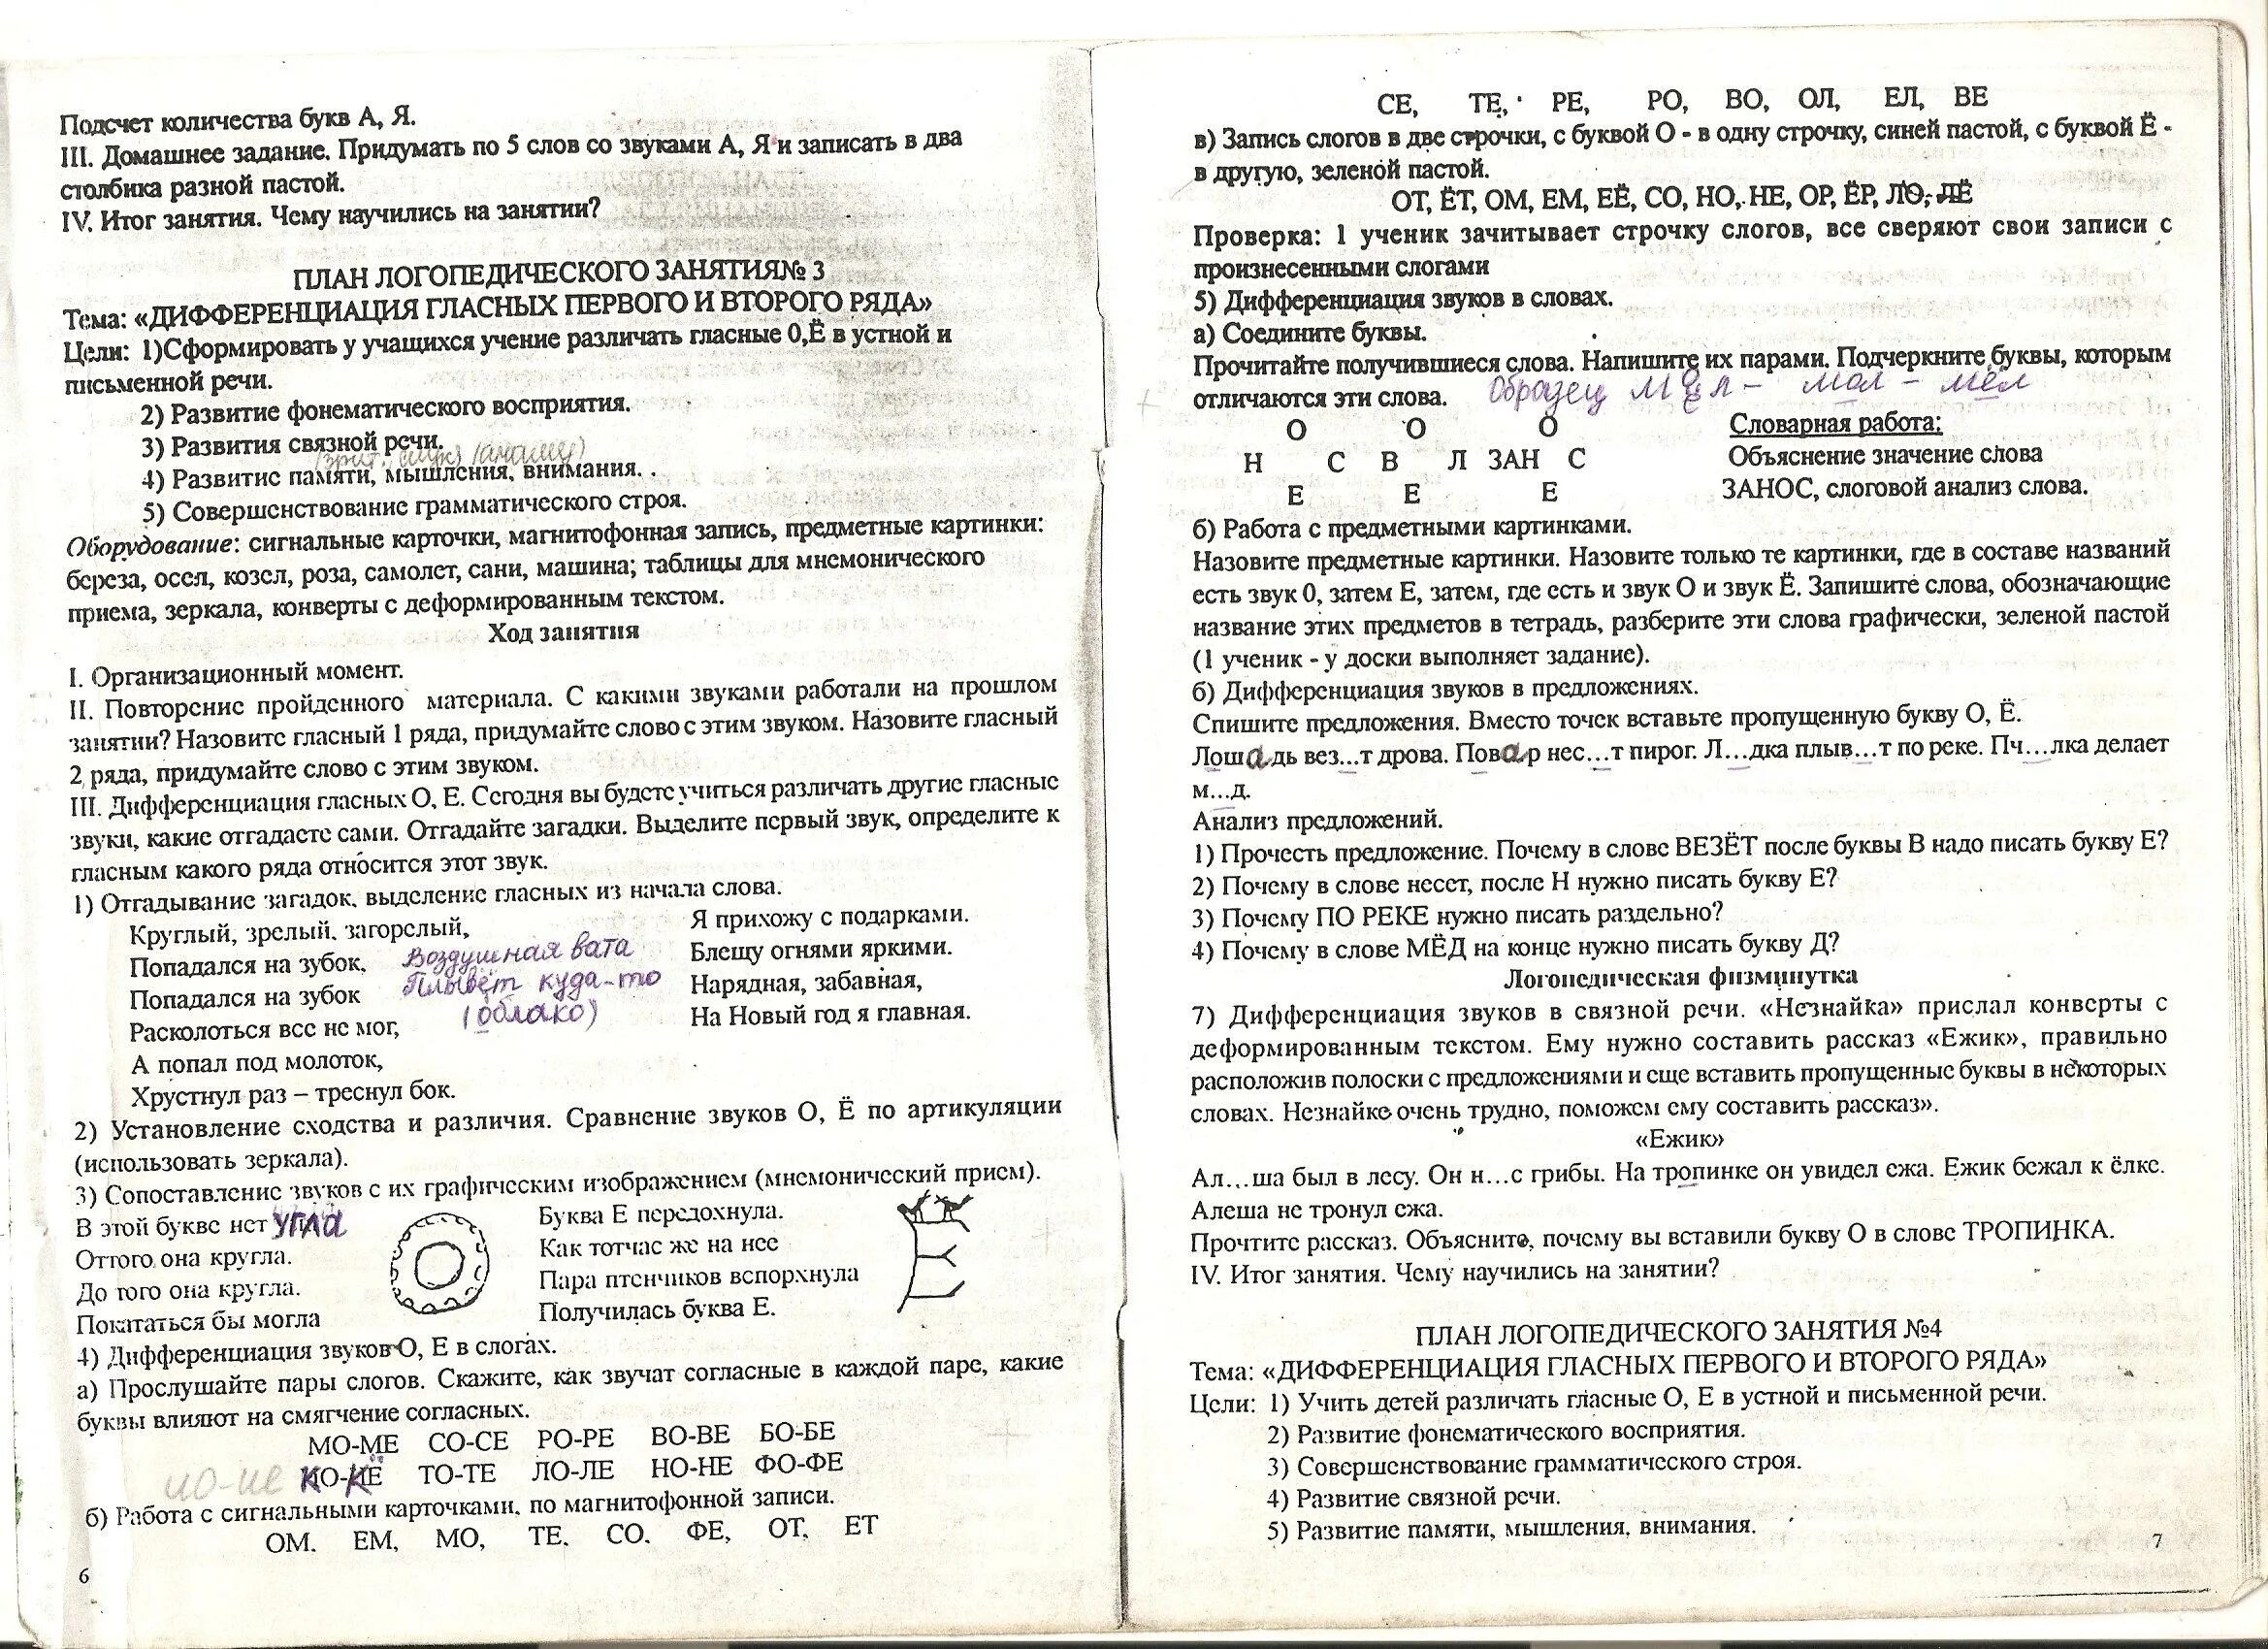 Подсчет количества букв А, Я.
III. Домашнее задание. Придумать по 5 слов со звуками А, Я и записать в два
столбика разной пастой.
IV. Итог занятия. Чему научились на занятии?
ПЛАН ЛОГОПЕДИЧЕСКОГО ЗАНЯТИЯ№ 3
Тема: «ДИФФЕРЕНЦИАЦИЯ ГЛАСНЫХ ПЕРВОГО И ВТОРОГО РЯДА»
Цели: 1)Сформировать у учащихся учение различать гласные 0,Ё в устной и
письменной речи.
2) Развитие фонематического восприятия.
3) Развития связной речи.
(зрит., слух) (анализ)
4) Развитие памяти, мышления, внимания. .
5) Совершенствование грамматического строя.
Оборудование: сигнальные карточки, магнитофонная запись, предметные картинки:
береза, осел, козел, роза, самолет, сани, машина; таблицы для мнемонического
приема, зеркала, конверты с деформированным текстом.
Ход занятия
I. Организационный момент.
II. Повторение пройденного материала. С какими звуками работали на прошлом
занятии? Назовите гласный 1 ряда, придумайте слово с этим звуком. Назовите гласный
2 ряда, придумайте слово с этим звуком.
III. Дифференциация гласных О, Е. Сегодня вы будете учиться различать другие гласные
звуки, какие отгадаете сами. Отгадайте загадки. Выделите первый звук, определите к
гласным какого ряда относится этот звук.
1) Отгадывание загадок, выделение гласных из начала слова.
Круглый, зрелый, загорелый,
Попадался на зубок,
Попадался на зубок
Расколоться все не мог,
А попал под молоток,
Хрустнул раз – треснул бок.
Воздушная вата
Плывёт куда-то
(облако)
Я прихожу с подарками.
Блещу огнями яркими.
Нарядная, забавная,
На Новый год я главная.
2) Установление сходства и различия. Сравнение звуков О, Ё по артикуляции
(использовать зеркала).
3) Сопоставление звуков с их графическим изображением (мнемонический прием).
В этой букве нет угла
Оттого она кругла.
До того она кругла.
Покататься бы могла
Буква Е передохнула.
Как тотчас же на нее
Пара птенчиков вспорхнула
Получилась буква Е.
4) Дифференциация звуков О, Е в слогах.
а) Прослушайте пары слогов. Скажите, как звучат согласные в каждой паре, какие
буквы влияют на смягчение согласных.
МО-МЕ СО-СЕ РО-РЕ ВО-ВЕ БО-БЕ
КО-КЁ ТО-ТЕ ЛО-ЛЕ НО-НЕ ФО-ФЕ
б) Работа с сигнальными карточками, по магнитофонной записи.
ОМ. ЕМ, МО, ТЕ. СО. ФЕ, ОТ, ЕТ
6
СЕ, ТЕ, РЕ, РО, ВО, ОЛ, ЕЛ, ВЕ
в) Запись слогов в две строчки, с буквой О - в одну строчку, синей пастой, с буквой Ё -
в другую, зеленой пастой.
ОТ, ЁТ, ОМ, ЕМ, ЕЁ, СО, НО, НЕ, ОР, ЁР, ЛО, ЛЁ
Проверка: 1 ученик зачитывает строчку слогов, все сверяют свои записи с
произнесенными слогами
5) Дифференциация звуков в словах.
а) Соедините буквы.
Прочитайте получившиеся слова. Напишите их парами. Подчеркните буквы, которым
отличаются эти слова. Образец М Л – мол – мёл
О О О
Н С В Л ЗАН С
Е Е Е
Словарная работа:
Объяснение значение слова
ЗАНОС, слоговой анализ слова.
б) Работа с предметными картинками.
Назовите предметные картинки. Назовите только те картинки, где в составе названий
есть звук 0, затем Е, затем, где есть и звук О и звук Ё. Запишите слова, обозначающие
название этих предметов в тетрадь, разберите эти слова графически, зеленой пастой
(1 ученик - у доски выполняет задание).
б) Дифференциация звуков в предложениях.
Спишите предложения. Вместо точек вставьте пропущенную букву О, Ё.
Лошадь вез...т дрова. Повар нес...т пирог. Л...дка плыв...т по реке. Пч...лка делает
м...д.
Анализ предложений.
1) Прочесть предложение. Почему в слове ВЕЗЁТ после буквы В надо писать букву Е?
2) Почему в слове несет, после Н нужно писать букву Е?
3) Почему ПО РЕКЕ нужно писать раздельно?
4) Почему в слове МЁД на конце нужно писать букву Д?
Логопедическая физминутка
7) Дифференциация звуков в связной речи. «Незнайка» прислал конверты с
деформированным текстом. Ему нужно составить рассказ «Ежик», правильно
расположив полоски с предложениями и еще вставить пропущенные буквы в некоторых
словах. Незнайке очень трудно, поможем ему составить рассказ».
«Ежик»
Ал...ша был в лесу. Он н...с грибы. На тропинке он увидел ежа. Ежик бежал к ёлке.
Алеша не тронул ежа.
Прочтите рассказ. Объясните, почему вы вставили букву О в слове ТРОПИНКА.
IV. Итог занятия. Чему научились на занятии?
ПЛАН ЛОГОПЕДИЧЕСКОГО ЗАНЯТИЯ №4
Тема: «ДИФФЕРЕНЦИАЦИЯ ГЛАСНЫХ ПЕРВОГО И ВТОРОГО РЯДА»
Цели: 1) Учить детей различать гласные О, Е в устной и письменной речи.
2) Развитие фонематического восприятия.
3) Совершенствование грамматического строя.
4) Развитие связной речи.
5) Развитие памяти, мышления, внимания.
7